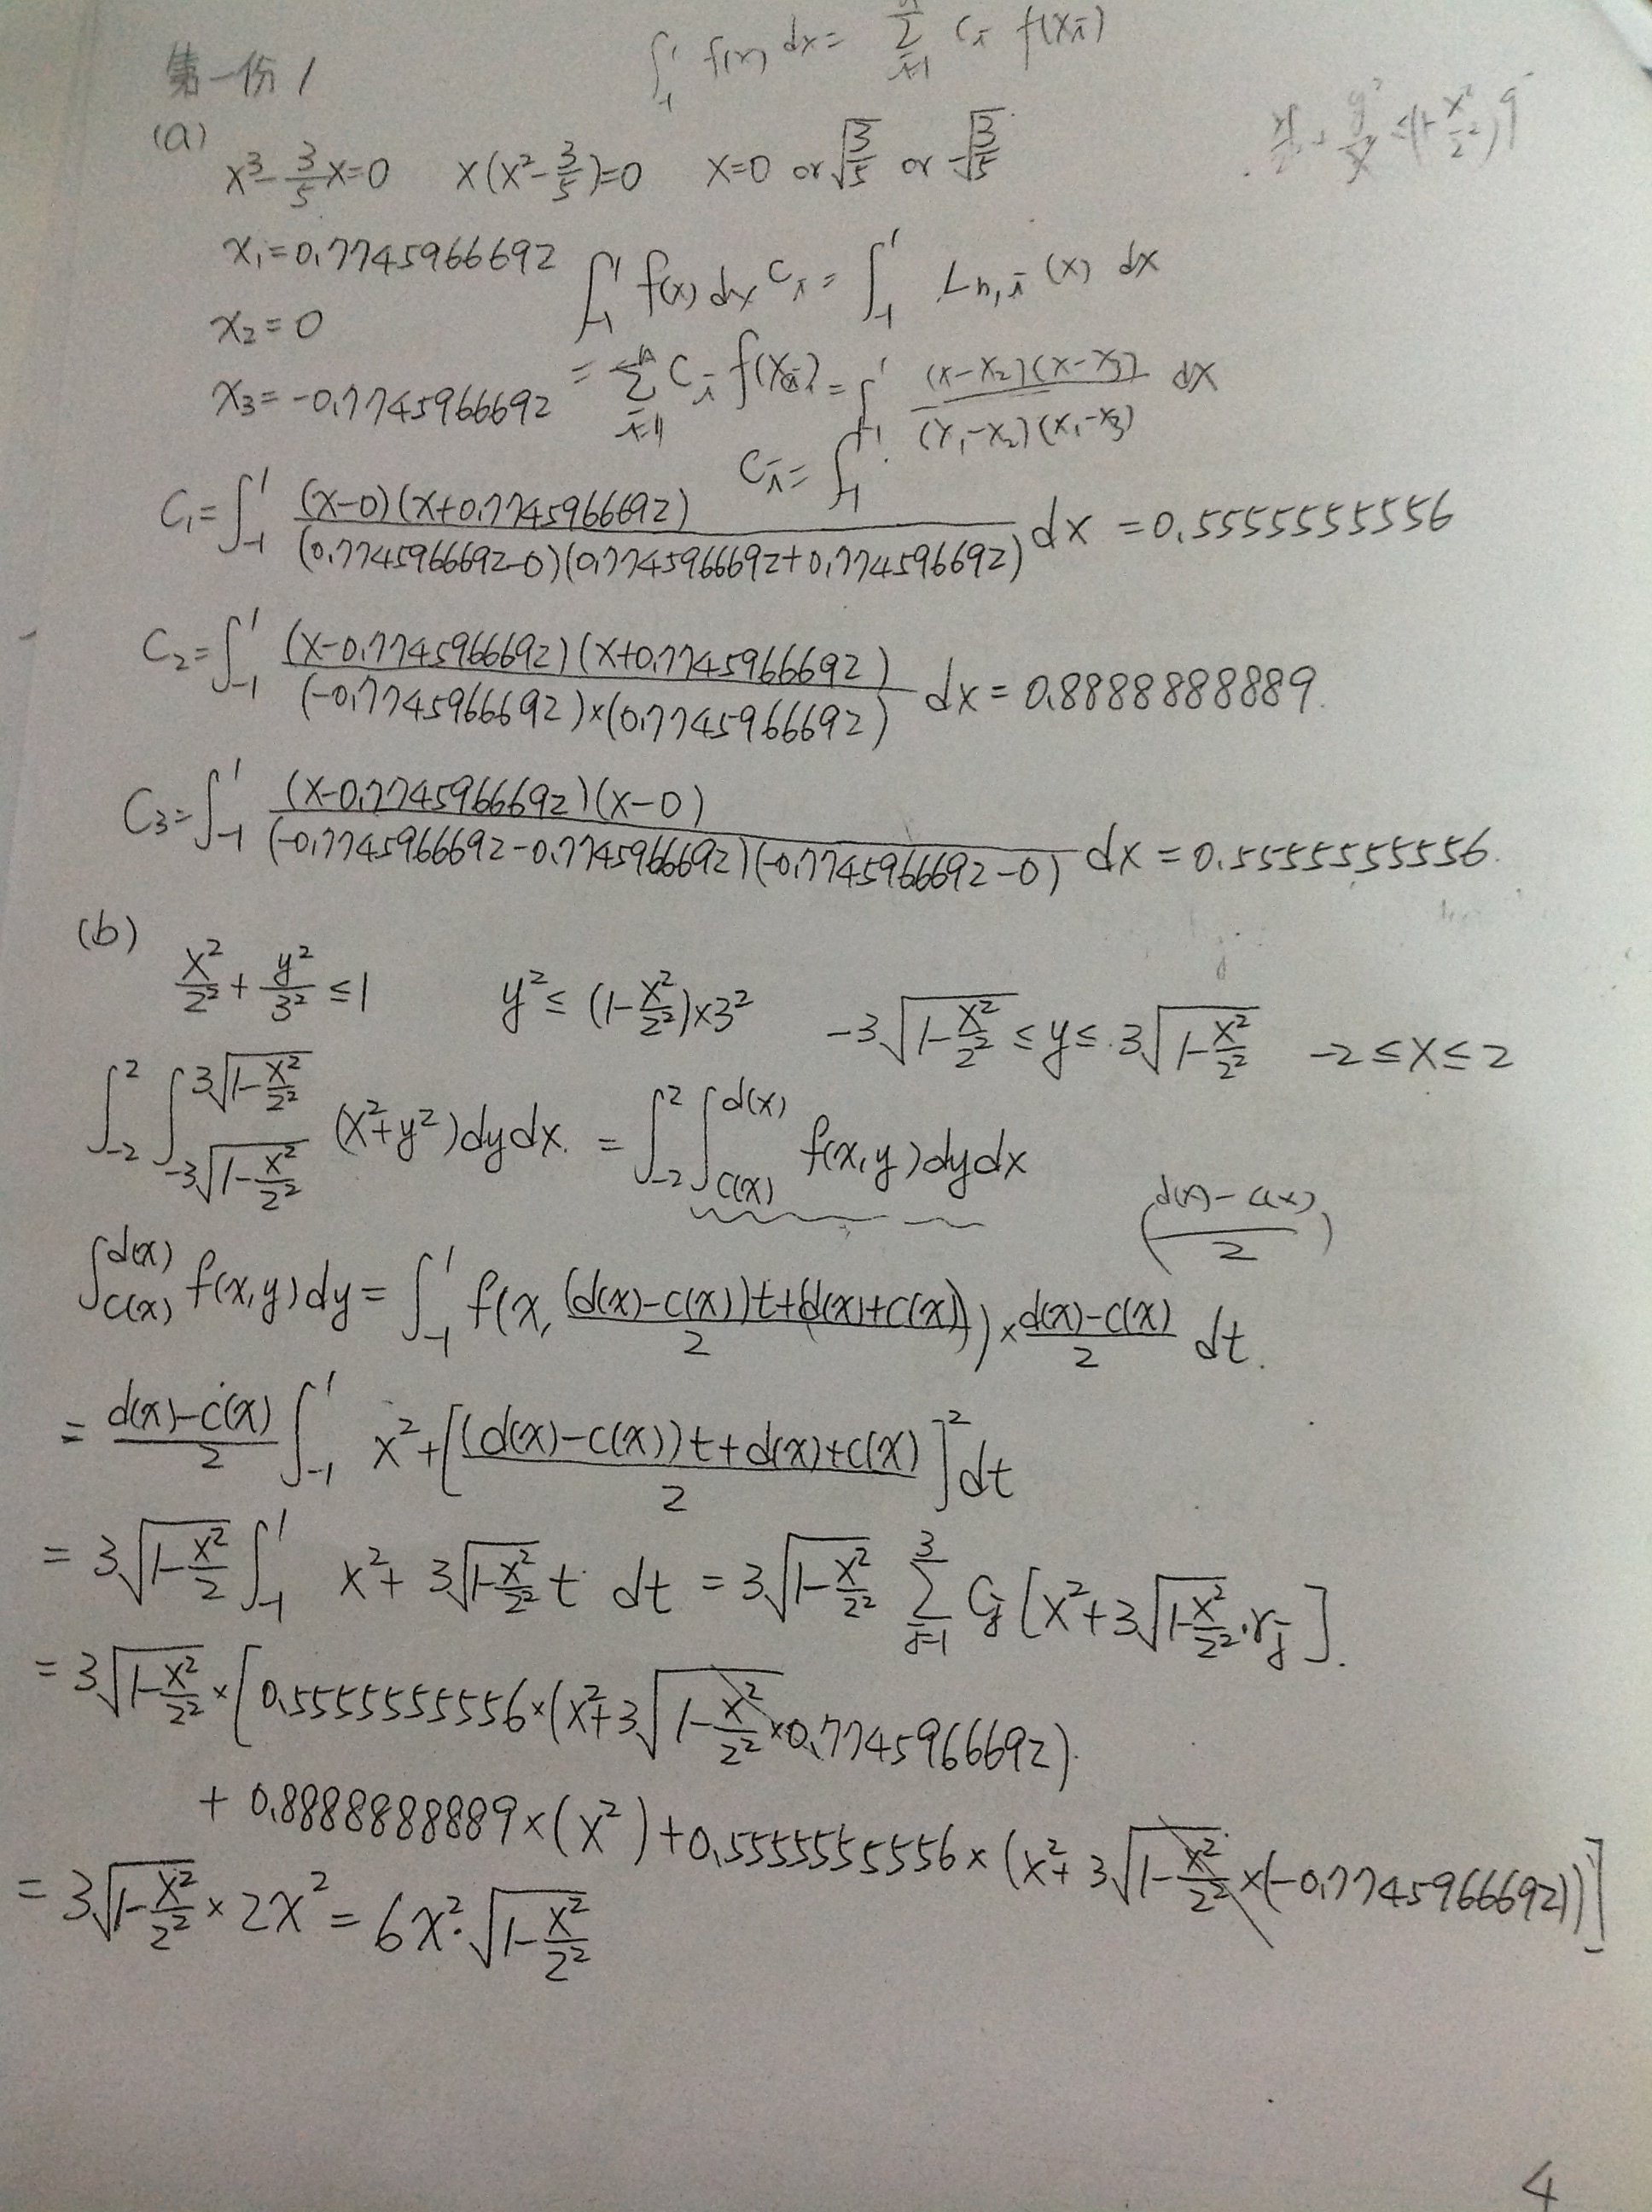 ∫₋₁¹ f(x) dx = Σᵢ₌₁ⁿ Cᵢ f(xᵢ)
第一份 1
(a)
x³ - 3/5 x = 0   x(x² - 3/5) = 0   x = 0 or √(3/5) or -√(3/5)
x₁ = 0.7745966692
∫₋₁¹ f(x) dx   Cᵢ = ∫₋₁¹ Lₙ,ᵢ(x) dx
x₂ = 0
= Σᵢ₌₁ⁿ Cᵢ f(xᵢ) = ∫₋₁¹ (x-x₂)(x-x₃) / (x₁-x₂)(x₁-x₃) dx
x₃ = -0.7745966692
Cᵢ = ∫₋₁¹
C₁ = ∫₋₁¹ (x-0)(x+0.7745966692) / (0.7745966692-0)(0.7745966692+0.774596692) dx = 0.5555555556
C₂ = ∫₋₁¹ (x-0.7745966692)(x+0.7745966692) / (-0.7745966692)×(0.7745966692) dx = 0.8888888889.
C₃ = ∫₋₁¹ (x-0.7745966692)(x-0) / (-0.7745966692-0.7745966692)(-0.7745966692-0) dx = 0.5555555556.
(b)
x²/2² + y²/3² ≤ 1   y² ≤ (1-x²/2²)×3²   -3√(1-x²/2²) ≤ y ≤ 3√(1-x²/2²)   -2 ≤ x ≤ 2
∫₋₂² ∫_{-3√(1-x²/2²)}^{3√(1-x²/2²)} (x²+y²) dy dx. = ∫₋₂² ∫_{c(x)}^{d(x)} f(x,y) dy dx
((d(x)-c(x))/2)
∫_{c(x)}^{d(x)} f(x,y) dy = ∫₋₁¹ f(x, ((d(x)-c(x))t+(d(x)+c(x)))/2) × (d(x)-c(x))/2 dt.
= (d(x)-c(x))/2 ∫₋₁¹ x² + [((d(x)-c(x))t+d(x)+c(x))/2]² dt
= 3√(1-x²/2) ∫₋₁¹ x² + 3√(1-x²/2²) t dt = 3√(1-x²/2²) Σⱼ₌₁³ Cⱼ [x² + 3√(1-x²/2²)·rⱼ].
= 3√(1-x²/2²) × [0.5555555556×(x²+3√(1-x²/2²)×0.7745966692)
+ 0.8888888889×(x²) + 0.5555555556×(x²+3√(1-x²/2²)×(-0.7745966692))]
= 3√(1-x²/2²) × 2x² = 6x²·√(1-x²/2²)
4